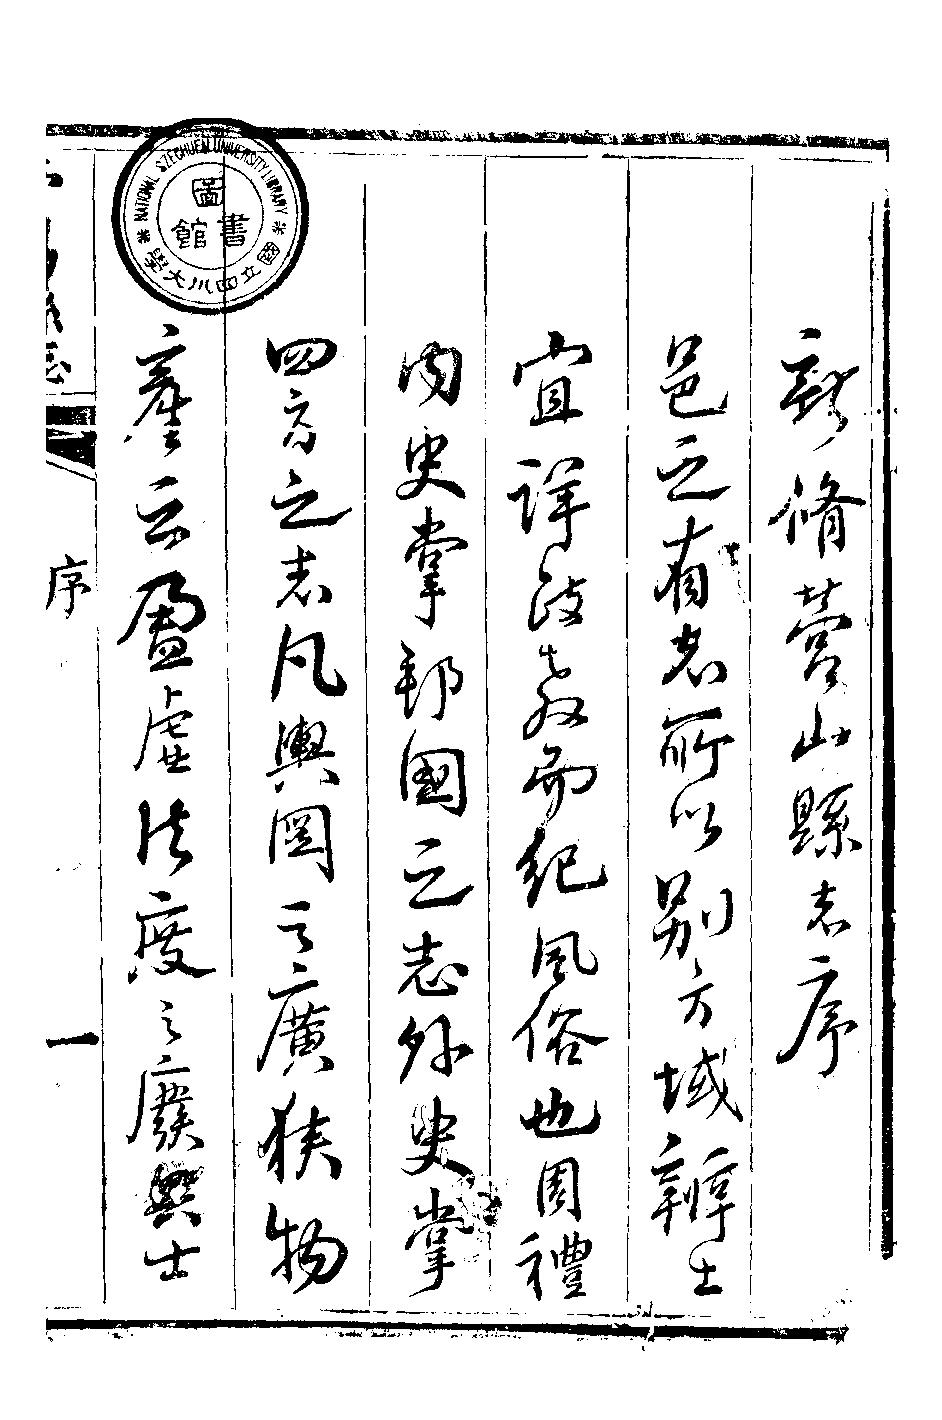 新脩營山縣志序
邑之有志所以别方域辨土
宜詳政敎而紀風俗也周禮
内史掌邦國之志外史掌
四方之志凡輿圖之廣狹物
產之盈虚法度之廢興士
序
一
圖書館
國立四川大學
NATIONAL SZECHUEN UNIVERSITY LIBRARY